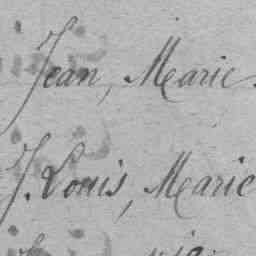 Jean, Marie
J. Louis, Marie